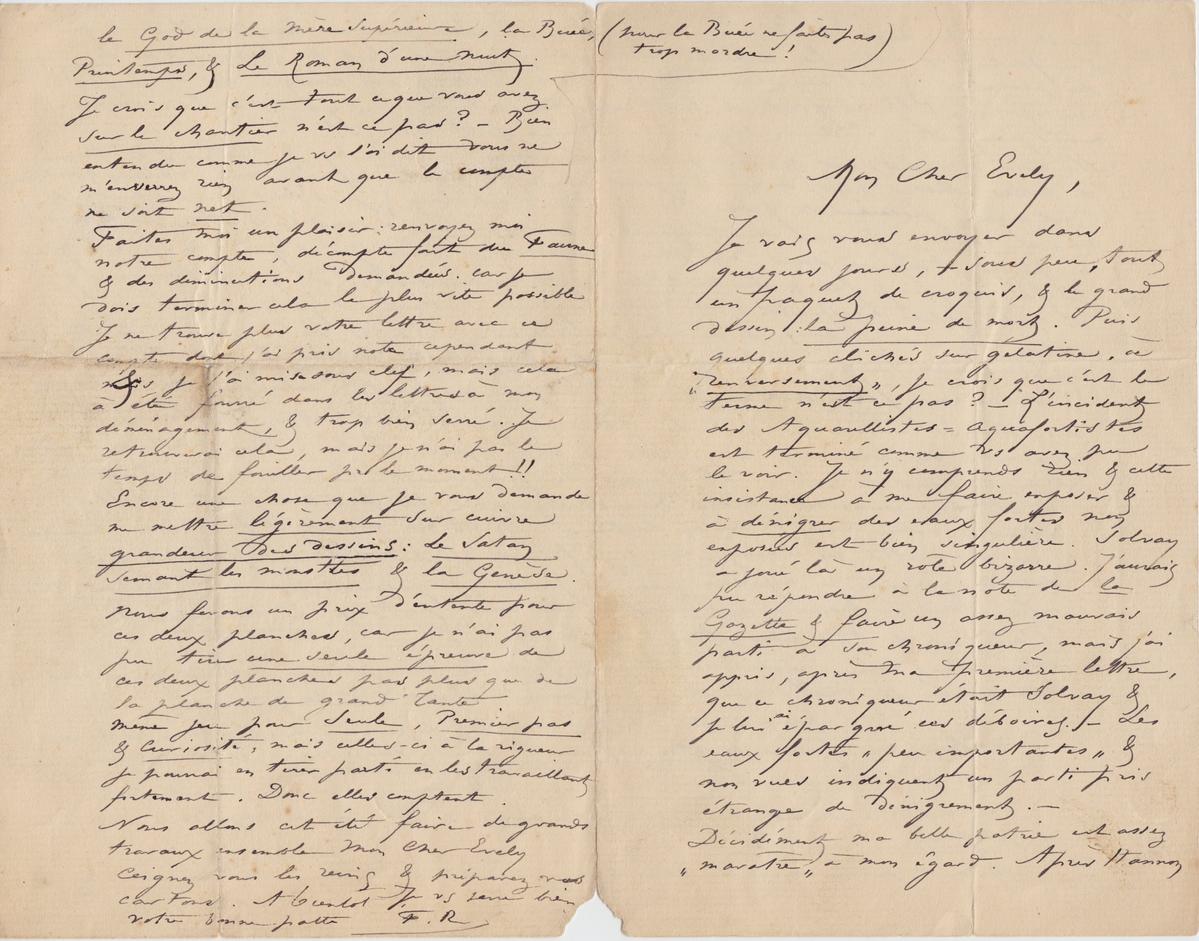 Mon Cher Evely,
Je vais vous envoyer dans
quelques jours, – sous peu, tout
un paquet de croquis, & le grand
dessin : la peine de mort. Puis
quelques clichés sur gélatine, à
"renversement", je crois que c'est le
terme n'est ce pas ? – L'incident
des Aquarellistes = aquafortistes
est terminé comme vs avez pu
le voir. Je n'y comprends rien & cette
insistance à me faire exposer &
à dénigrer des eaux fortes non
exposées est bien singulière. Solvay
a joué là un rôle bizarre. J'aurais
pu répondre à la note de la
Gazette & faire un assez mauvais
parti à son chroniqueur, mais j'ai
appris, après ma première lettre,
que ce chroniqueur était Solvay &
je lui ai épargné ces déboires. – Les
eaux fortes "peu importantes" &
non vues indiquent un parti pris
étrange de dénigrement. –
Décidément ma belle patrie est assez
"maratre" à mon égard. Après Hannon
le God de la Mère Supérieure, la Buée, (pour la Buée ne faites pas
trop mordre !)
Printemps, & Le Roman d'une nuit.
Je crois que c'est tout ce que vous avez
sur le chantier n'est ce pas ? – Bien
entendu comme je vs l'ai dit vous ne
m'enverrez rien avant que le compte
ne soit net.
Faites moi un plaisir : renvoyez moi
notre compte, décompte fait du Faune
& des diminutions demandées. car je
dois terminer cela le plus vite possible
Je ne trouve plus votre lettre avec ce
compte dont j'ai pris note cependant
je l'ai mise sous clef, mais cela
à été fourré dans les lettres à mon
déménagement, & trop bien serré. Je
retrouverai cela, mais je n'ai pas le
temps de fouiller pr le moment !!
Encore une chose que je vous demande
me mettre légèrement sur cuivre
grandeur des dessins : Le Satan
semant les monstres & la Genèse.
nous ferons un prix d'entente pour
ces deux planches, car je n'ai pas
pu tirer une seule épreuve de
ces deux planches pas plus que de
la planche de grand Tante
même jeu pour Seule, Premier pas
& Curiosité, mais celles-ci à la rigueur
je pourrai en tirer parti en les travaillant
fortement. Donc elles comptent.
Nous allons cet été faire de grands
travaux ensemble mon Cher Evely
Ceignez vous les reins & préparez vos
cartons. A bientôt Je vs serre bien
votre bonne patte F. R